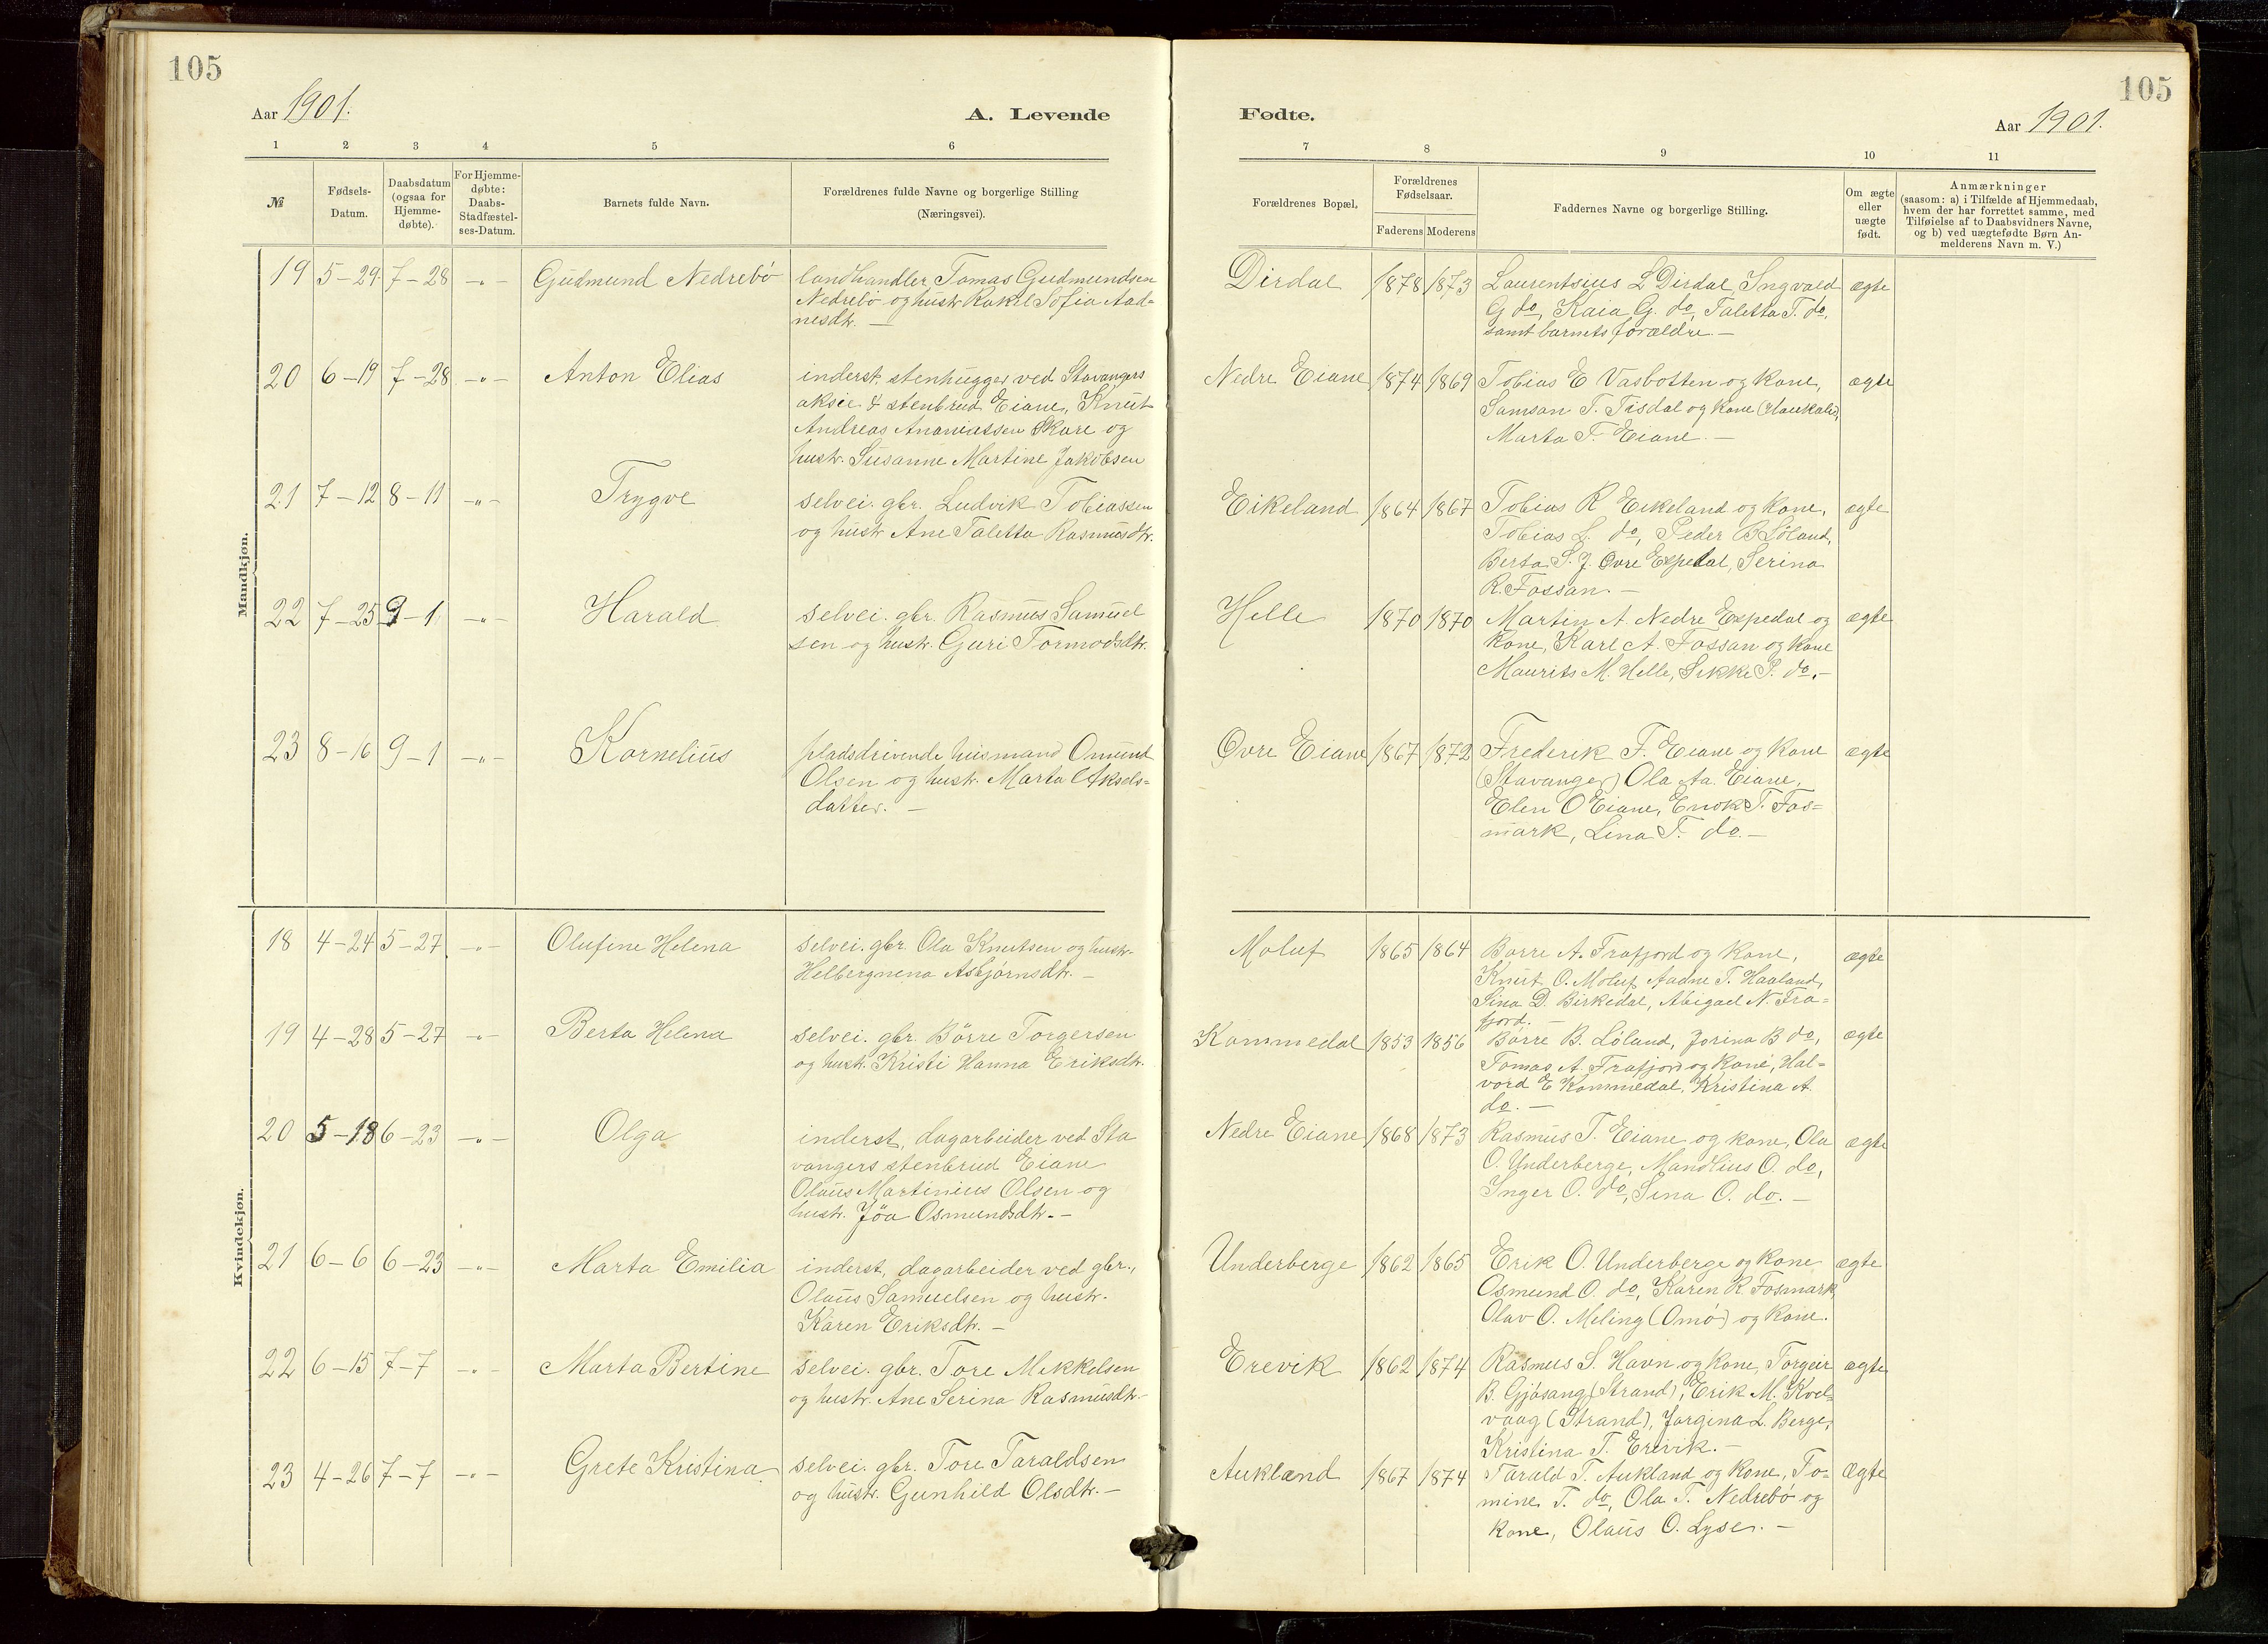 105
105
Aar 1901.
A. Levende
Fødte.
Aar 1901.
1 2 3 4 5 6 7 8 9 10 11
№
Fødsels-
Datum.
Daabsdatum
(ogsaa for
Hjemme-
døbte).
For Hjemme-
døbte:
Daabs-
Stadfæstel-
ses-Datum.
Barnets fulde Navn.
Forældrenes fulde Navne og borgerlige Stilling
(Næringsvei).
Forældrenes Bopæl.
Forældrenes
Fødselsaar.
Faderens Moderens
Faddernes Navne og borgerlige Stilling.
Om ægte
eller
uægte
født.
Anmærkninger
(saasom: a) i Tilfælde af Hjemmedaab,
hvem der har forrettet samme, med
Tilføielse af to Daabsvidners Navne,
og b) ved uægtefødte Børn An-
melderens Navn m. V.)
Mandkjøn.
19 5-29 7-28 -"- Gudmund Nedrebö
landhandler Tomas Gudmundsen
Nedrebö og hustr. Rakel Sofia Aad-
nesdtr. -
Dirdal 1878 1873
Laurentsius L Dirdal, Ingvald
G do, Kaia G. do, Taletta T. do,
samt barnets forældre -
ægte
20 6-19 7-28 -"- Anton Elias
inderst, stenhugger ved Stavangers
aksie & stenbrud Eiane, Knut
Andreas Ananiassen Skare og
hustr. Susanne Martine Jakobsen
Nedre Eiane 1874 1869
Tobias E Vasbotten og kone,
Samson T. Tisdal og kone (Haukalid),
Marta T. Eiane. -
ægte
21 7-12 8-11 -"- Trygve
selvei. gbr. Ludvik Tobiassen
og hustr Ane Taletta Rasmusdtr.
Eikeland 1864 1867
Tobias R Eikeland og kone,
Tobias L. do, Peder B Löland,
Berta S. J. Øvre Espedal, Serina
R. Fossan. -
ægte
22 7-25 9-1 -"- Harald
selvei. gbr. Rasmus Samuel
sen og hustr. Guri Tormodsdtr.
Helle 1870 1870
Martin A. Nedre Espedal og
kone, Karl A. Fossan og kone
Maurits M. Helle, Sikke P. do. -
ægte
23 8-16 9-1 -"- Kornelius
pladsdrivende husmand Omund
Olsen og hustr. Marta Aksels-
datter. -
Øvre Eiane 1867 1872
Frederik F. Eiane og kone
(Stavanger) Ola Aa. Eiane,
Elen O Eiane, Enok T. Fos-
mark, Lina T. do. -
ægte
Kvindekjøn.
18 4-24 5-27 -"- Olufine Helena
selvei. gbr. Ola Knutsen og hustr.
Helbergnena Asbjörnsdtr. -
Moluf 1865 1864
Borre A. Frafjord og kone,
Knut O. Moluf, Aadne T. Haaland,
Sina D. Birkedal, Abigael N. Fra-
fjord. -
ægte
19 4-28 5-27 -"- Berta Helena
selvei. gbr. Börre Torgersen
og hustr. Kristi Hanna Eriksdtr.
Kommedal 1853 1856
Börre B. Löland, Jorina B do,
Tomas A. Frafjord og kone, Hal-
vord E Kommedal, Kristina A.
do. -
ægte
20 5-18 6-23 -"- Olga
inderst, dagarbeider ved Sta
vangers stenbrud Eiane
Olaus Martinius Olsen og
hustr. Jöa Osmundsdtr. -
Nedre Eiane 1868 1873
Rasmus T. Eiane og kone, Ola
O. Underberge, Mandlius O. do,
Inger O. do, Sina O. do. -
ægte
21 6-6 6-23 -"- Marta Emilia
inderst, dagarbeider ved gbr.,
Olaus Samuelsen og hustr.
Karen Eriksdtr. -
Underberge 1862 1865
Erik O. Underberge og kone
Osmund O. do, Karen R. Fosmark,
Olav O. Meling (Omö) og kone.
ægte
22 6-15 7-7 -"- Marta Bertine
selvei. gbr. Tore Mikkelsen
og hustr. Ane Serina Rasmusdtr. -
Erevik 1862 1874
Rasmus S. Havn og kone, Torgeir
B. Gjösang (Strand), Erik M. Kvel-
vaag (Strand), Jorgina L. Berge,
Kristina T. Erevik. -
ægte
23 4-26 7-7 -"- Grete Kristina
selvei. gbr. Tore Taraldsen
og hustr. Gunhild Olsdtr. -
Aukland 1867 1874
Tarald T. Aukland og kone, To-
mine T. do, Ola T. Nedrebö og
kone, Olaus O. Lyse. -
Ægte